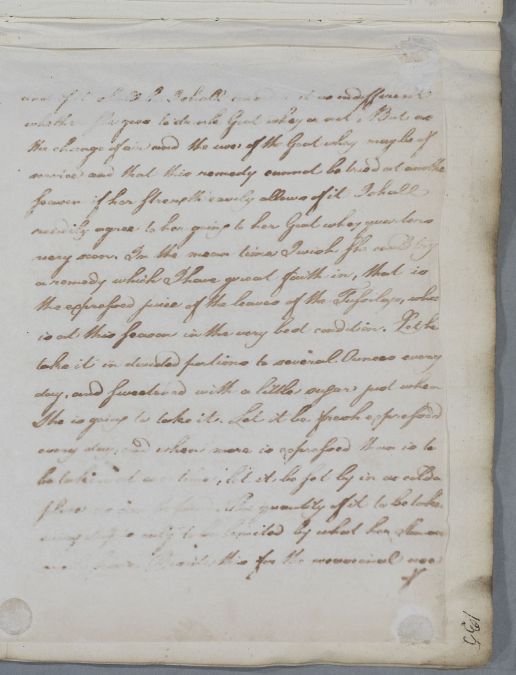 and if it should be I shall consider it as indifferent
whether she goes to drink Goat whey or not; But as
the change of air and the use of the Goat whey may be of
service and that this remedy cannot be tried at another
season if her strength easily allows of it I shall
readily agree to her going to her Goat whey quarters
very soon. In the mean time I wish she could try
a remedy which I have great faith in, that is
the expressed juice of the leaves of the Tussilago, which
is at this season in the very best condition. Let her
take it in divided portions to several Ounces every
day, and sweetened with a little sugar just when
She is going to take it. Let it be fresh expressed
every day, and when more is expressed than is to
be taken at one time, let it be set by in as cold a
place as can be found. The quantity of it to be taken
every day is only to be limited by what her stomach
will bear. Beside this for the
195